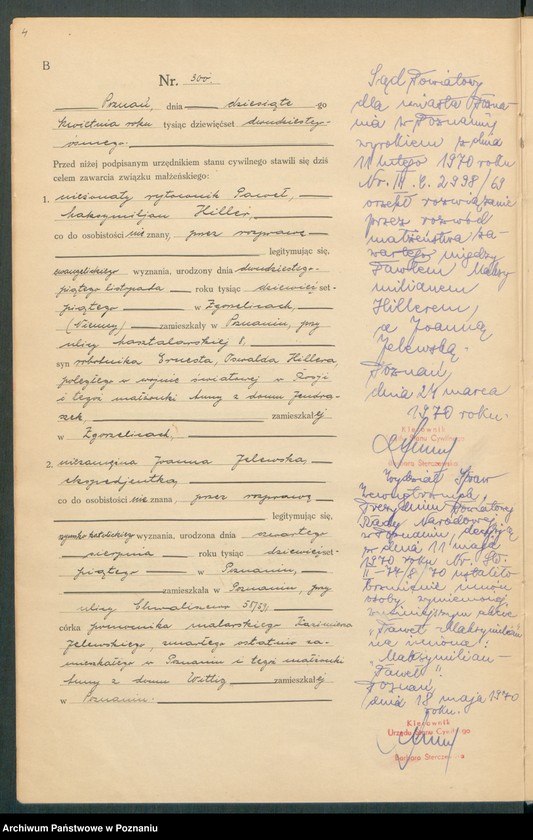 4
B
Nr. 300.
Poznań, dnia dziesiąte go
kwietnia roku tysiąc dziewięćset dwudziestego-
ósmego.
Przed niżej podpisanym urzędnikiem stanu cywilnego stawili się dziś
celem zawarcia związku małżeńskiego:
1. nieżonaty rytownik Paweł,
Maksymiljan Hiller,
co do osobistości nieznany, przez rozprawę
legitymując się,
ewangelickiego wyznania, urodzony dnia dwudziestego-
piątego listopada roku tysiąc dziewięćset-
piątego w Zgorzelicach,
(Niemcy) zamieszkały w Poznaniu, przy
ulicy Masztalarskiej 8,
syn robotnika Ernesta, Oswalda Hillera,
poległego w wojnie światowej w Rosji
i tegoż małżonki Anny z domu
zamieszkałej
w Zgorzelicach.
2. niezamężna Joanna Jelewska,
ekspedjentka,
co do osobistości nieznana, przez rozprawę
legitymując się,
rzymsko katolickiego wyznania, urodzona dnia czwartego
sierpnia roku tysiąc dziewięćset-
piątego w Poznaniu,
zamieszkała w Poznaniu, przy
ulicy Chwaliszewo
córka pomocnika malarskiego Kazimierza
Jelewskiego, zmarłego ostatnio za-
mieszkałego w Poznaniu i tegoż małżonki
Anny z domu Wittig zamieszkałej
w Poznaniu.
Sąd Powiatowy
dla miasta Pozna-
nia w Poznaniu
wyrokiem z dnia
11 lutego 1970 roku
Nr. III. C. 2998/69
orzekł rozwiązanie
przez rozwód
małżeństwa za-
wartego między
Pawłem Maksy
milianem
Hillerem,
a Joanną
Jelewską.
Poznań,
dnia 24 marca
1970 roku.
Kierownik
Urzędu Stanu Cywilnego
Barbara Sterczewska
Wydział Spraw
Wewnętrznych,
Prezydium Powiatowej
Rady Narodowej
w Poznaniu, decyzją
z dnia 11 maja
1970 roku Nr.
ustalił
brzmienie imion
osoby wymienionej
w niniejszym akcie
"Paweł-Maksymilian"
na imiona:
"Maksymilian-
Paweł".
Poznań,
dnia 18 maja 1970
roku.
Kierownik
Urzędu Stanu Cywilnego
Barbara Sterczewska
Archiwum Państwowe w Poznaniu